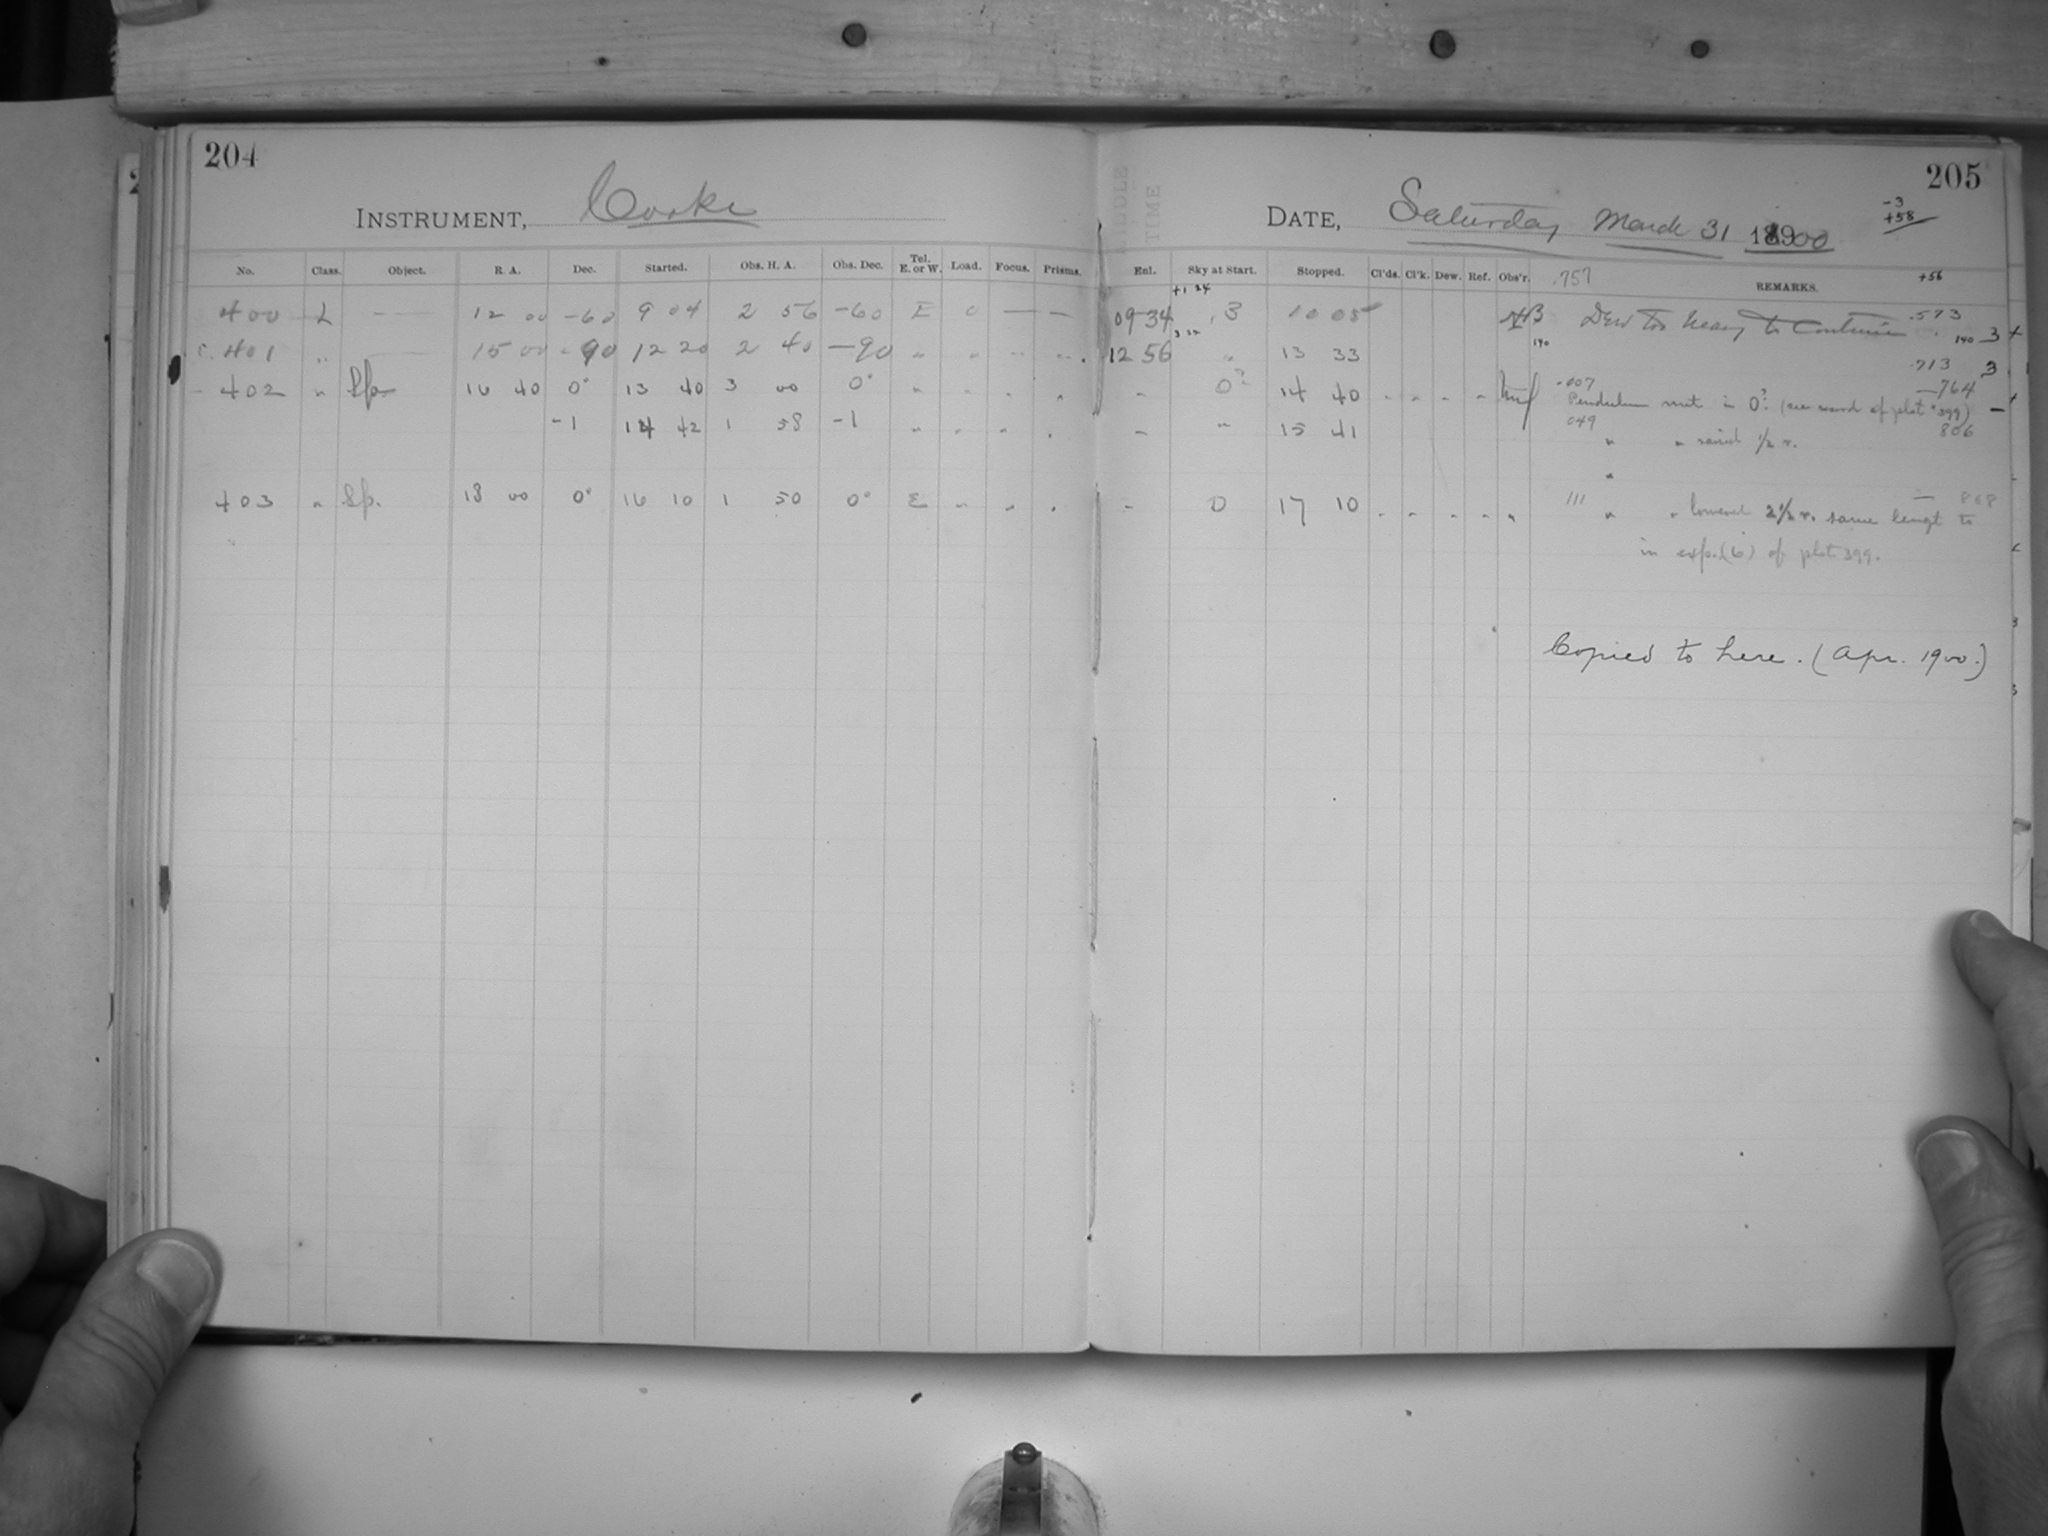 204
INSTRUMENT, Cooke
No. Class. Object. R. A. Dec. Started. Obs. H. A. Obs. Dec. Tel. E. or W. Load. Focus. Prisms.
400 L — 12 00 -60 9 04 2 56 -60 E 0 — —
401 " — 15 00 -90 12 20 2 40 -90 " " " "
402 " Sp. 16 40 0° 13 40 3 00 0° " " " "
-1 14 42 1 58 -1 " " " "
403 " Sp. 18 00 0° 16 10 1 50 0° E " " "
205
MIDDLE TIME
DATE, Saturday March 31 1900
-3
+58
Enl. Sky at Start. Stopped. Cl'ds. Cl'k. Dew. Ref. Obs'r. .757 REMARKS. +56
+1 24
09 34 3 10 05 Dew too heavy to Continue .573
140 140 3
12 56 " 13 33 .713 3
- 0? 14 40 " " " " .007 -764
Pendulum nut in 0? (see record of plot 399)
- " 15 41 049 " " raised 1/2 r. 806
"
- 0 17 10 " " " " " 111 " " lowered 2 1/2 r. same lengt to 868
in exp. (6) of plot 399.
Copied to here. (Apr. 1900.)